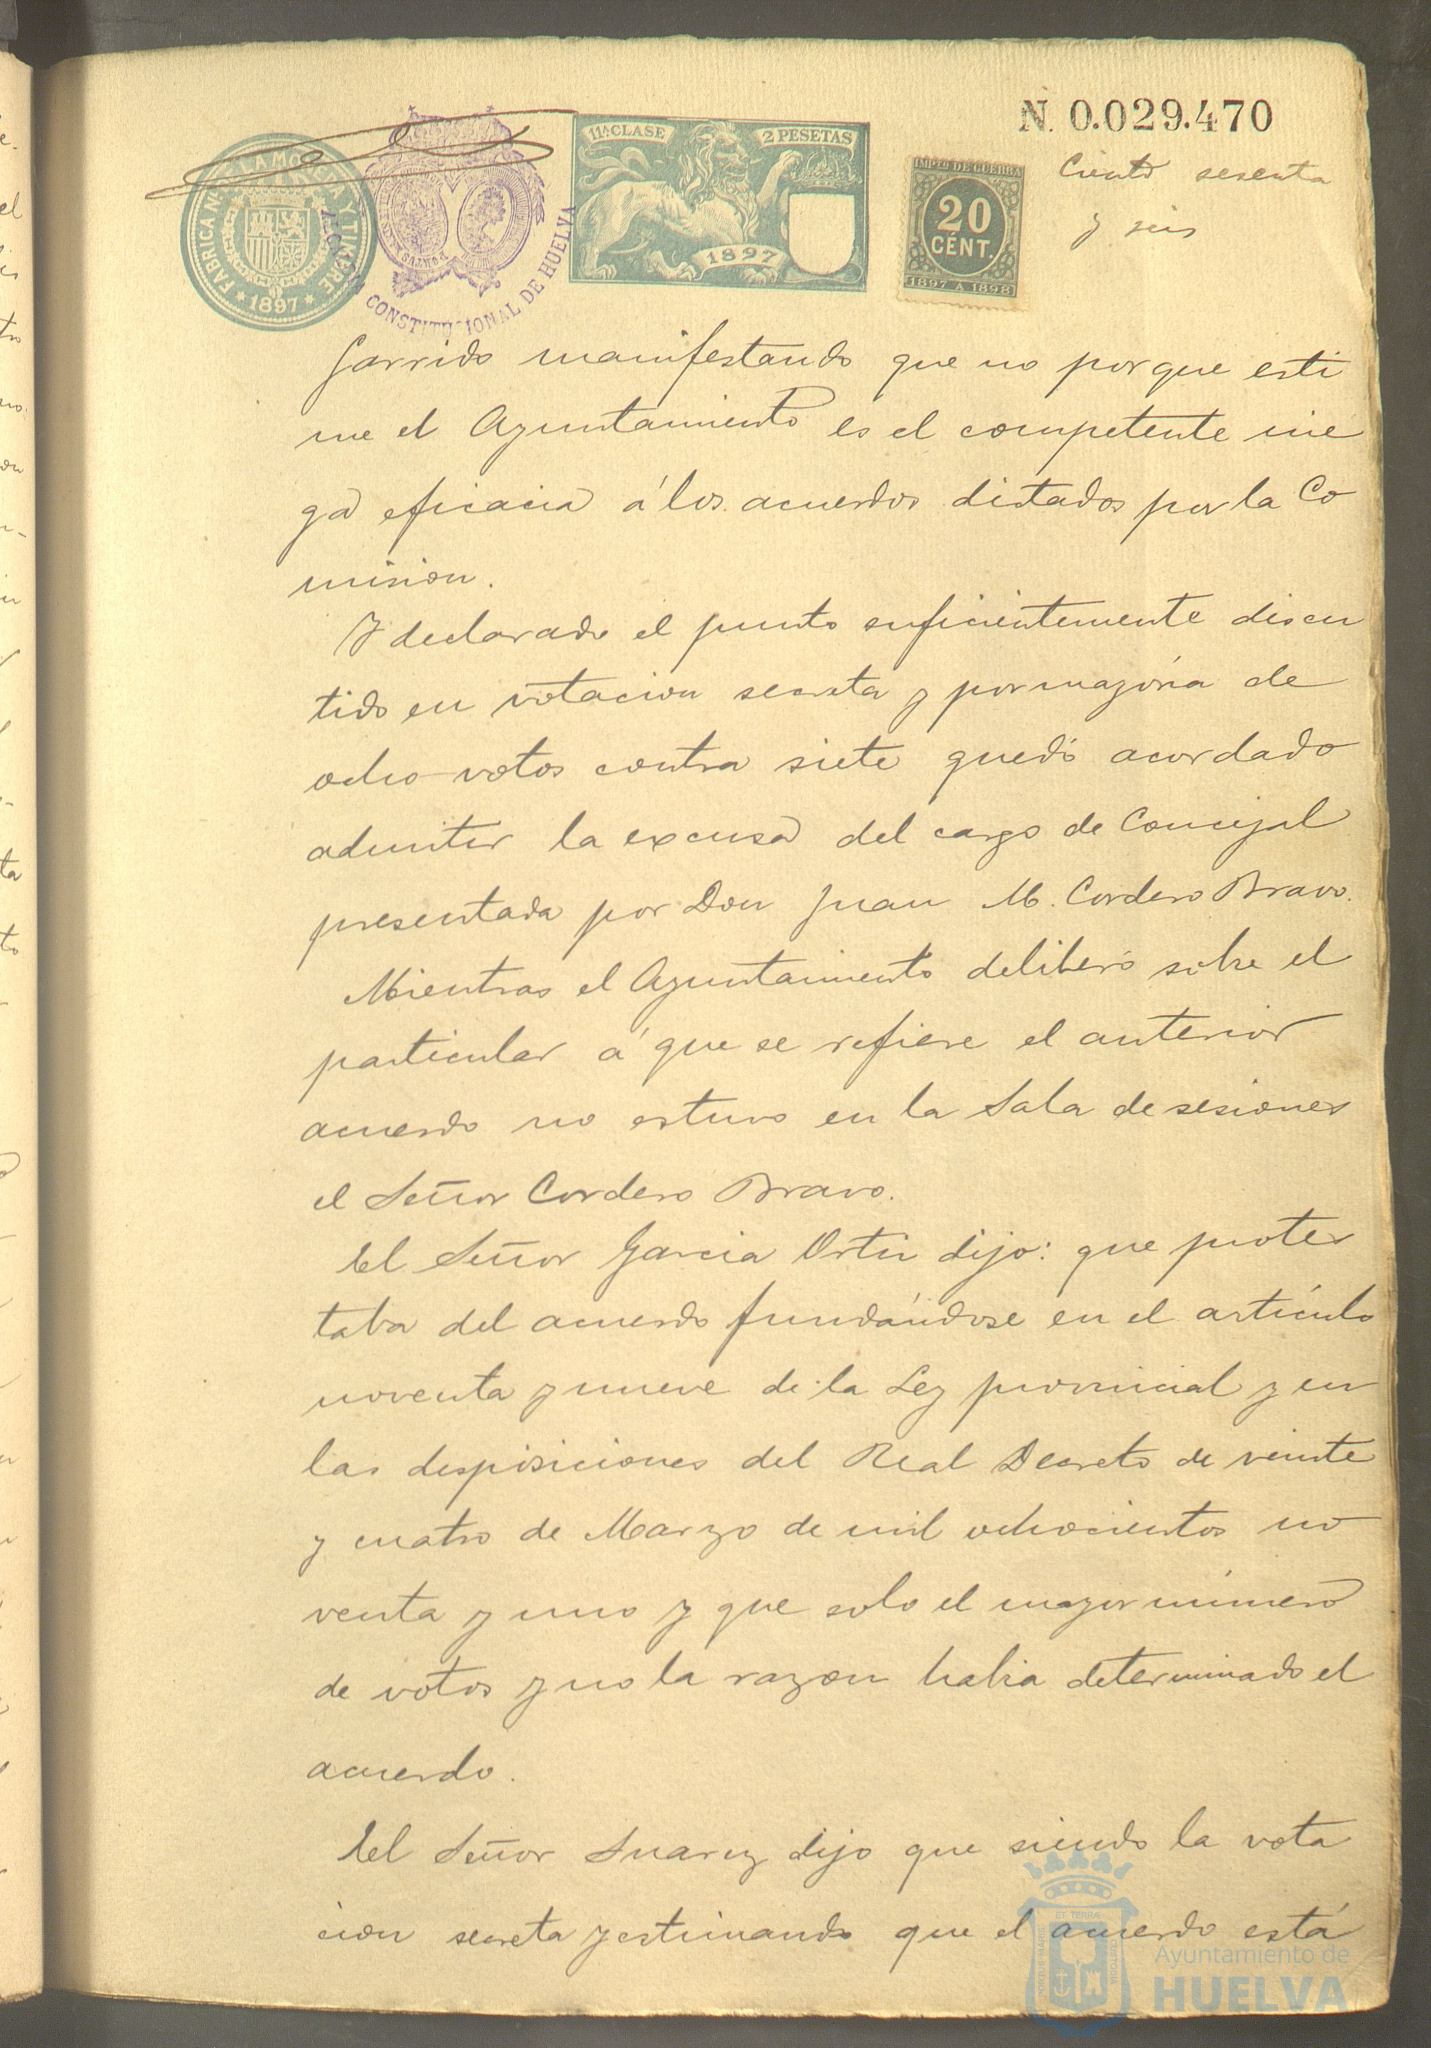 N. 0.029.470
11ª CLASE 2 PESETAS
1897
IMPTO DE GUERRA
20
CÉNT.
1897 A 1898
FABRICA NAL. DE LA MONEDA Y TIMBRE
* 1897 *
ALCALDIA CONSTITUCIONAL DE HUELVA
Ciento sesenta
y seis
Garrido manifestando que no porque esti
me el Ayuntamiento es el competente nie
ga eficacia á los acuerdos dictados por la Co
mision.
Y declarado el punto suficientemente discu
tido en votacion secreta y por mayoría de
ocho votos contra siete quedó acordado
admitir la excusa del cargo de Concejal
presentada por Don Juan M. Cordero Bravo.
Mientras el Ayuntamiento deliberó sobre el
particular á que se refiere el anterior
acuerdo no estuvo en la Sala de sesiones
el Señor Cordero Bravo.
El Señor Garcia Ortiz dijo: que protes
taba del acuerdo fundándose en el artículo
noventa y nueve de la Ley provincial y en
las disposiciones del Real Decreto de veinte
y cuatro de Marzo de mil ochocientos no
venta y uno y que solo el mayor número
de votos y no la razon habia determinado el
acuerdo.
El Señor Suarez dijo que siendo la vota
cion secreta y estimando que el acuerdo está
Ayuntamiento de
HUELVA